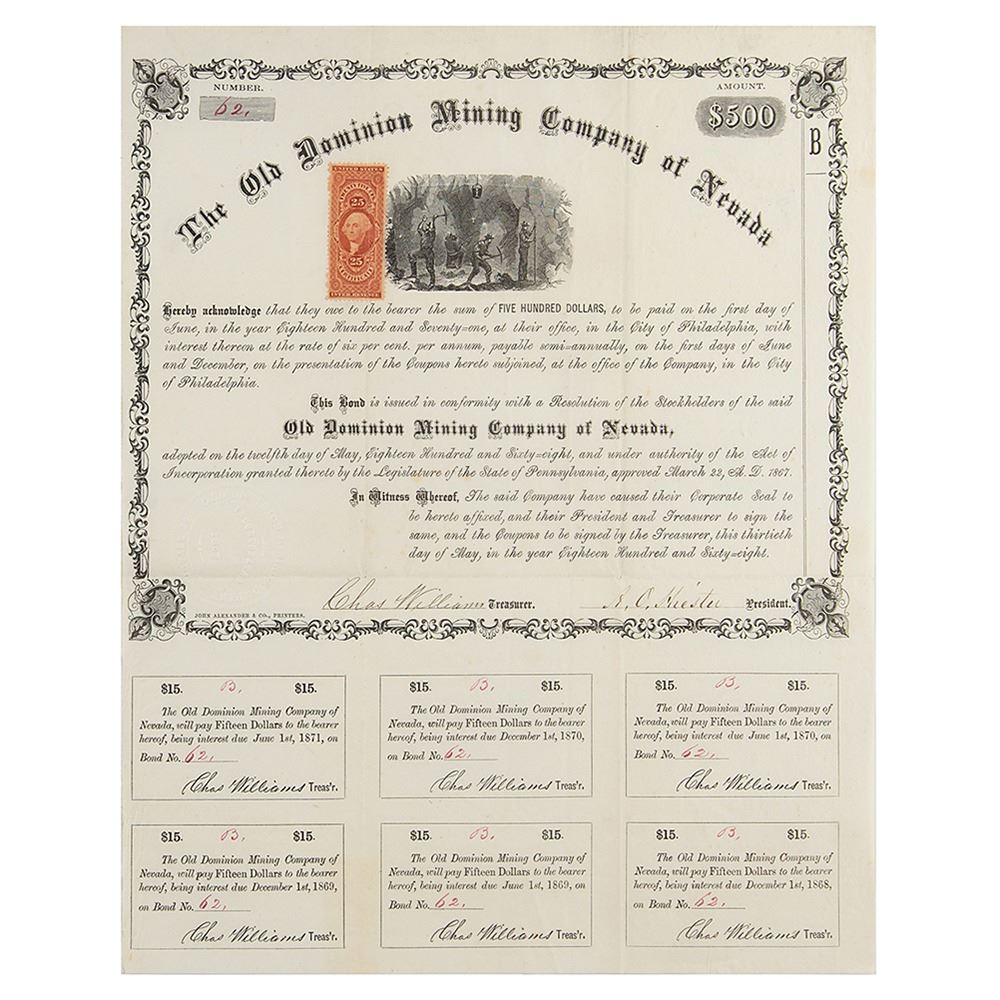 NUMBER.
62.
AMOUNT.
$500
B
The Old Dominion Mining Company of Nevada
UNITED STATES
TWENTY FIVE CENTS
25
25
CERTIFICATE
INTER. REVENUE
Hereby acknowledge that they owe to the bearer the sum of FIVE HUNDRED DOLLARS, to be paid on the first day of
June, in the year Eighteen Hundred and Seventy=one, at their office, in the City of Philadelphia, with
interest thereon at the rate of six per cent. per annum, payable semi=annually, on the first days of June
and December, on the presentation of the Coupons hereto subjoined, at the office of the Company, in the City
of Philadelphia.
This Bond is issued in conformity with a Resolution of the Stockholders of the said
Old Dominion Mining Company of Nevada,
adopted on the twelfth day of May, Eighteen Hundred and Sixty=eight, and under authority of the Act of
Incorporation granted thereto by the Legislature of the State of Pennsylvania, approved March 22, A. D. 1867.
In Witness Whereof, The said Company have caused their Corporate Seal to
be hereto affixed, and their President and Treasurer to sign the
same, and the Coupons to be signed by the Treasurer, this thirtieth
day of May, in the year Eighteen Hundred and Sixty=eight.
Chas Williams Treasurer.
President.
JOHN ALEXANDER & CO., PRINTERS.
$15. B. $15.
The Old Dominion Mining Company of
Nevada, will pay Fifteen Dollars to the bearer
hereof, being interest due June 1st, 1871, on
Bond No. 62.
Chas Williams Treas'r.
$15. B. $15.
The Old Dominion Mining Company of
Nevada, will pay Fifteen Dollars to the bearer
hereof, being interest due December 1st, 1870,
on Bond No. 62.
Chas Williams Treas'r.
$15. B. $15.
The Old Dominion Mining Company of
Nevada, will pay Fifteen Dollars to the bearer
hereof, being interest due June 1st, 1870, on
Bond No. 62.
Chas Williams Treas'r.
$15. B. $15.
The Old Dominion Mining Company of
Nevada, will pay Fifteen Dollars to the bearer
hereof, being interest due December 1st, 1869,
on Bond No. 62.
Chas Williams Treas'r.
$15. B. $15.
The Old Dominion Mining Company of
Nevada, will pay Fifteen Dollars to the bearer
hereof, being interest due June 1st, 1869, on
Bond No. 62.
Chas Williams Treas'r.
$15. B. $15.
The Old Dominion Mining Company of
Nevada, will pay Fifteen Dollars to the bearer
hereof, being interest due December 1st, 1868,
on Bond No. 62.
Chas Williams Treas'r.